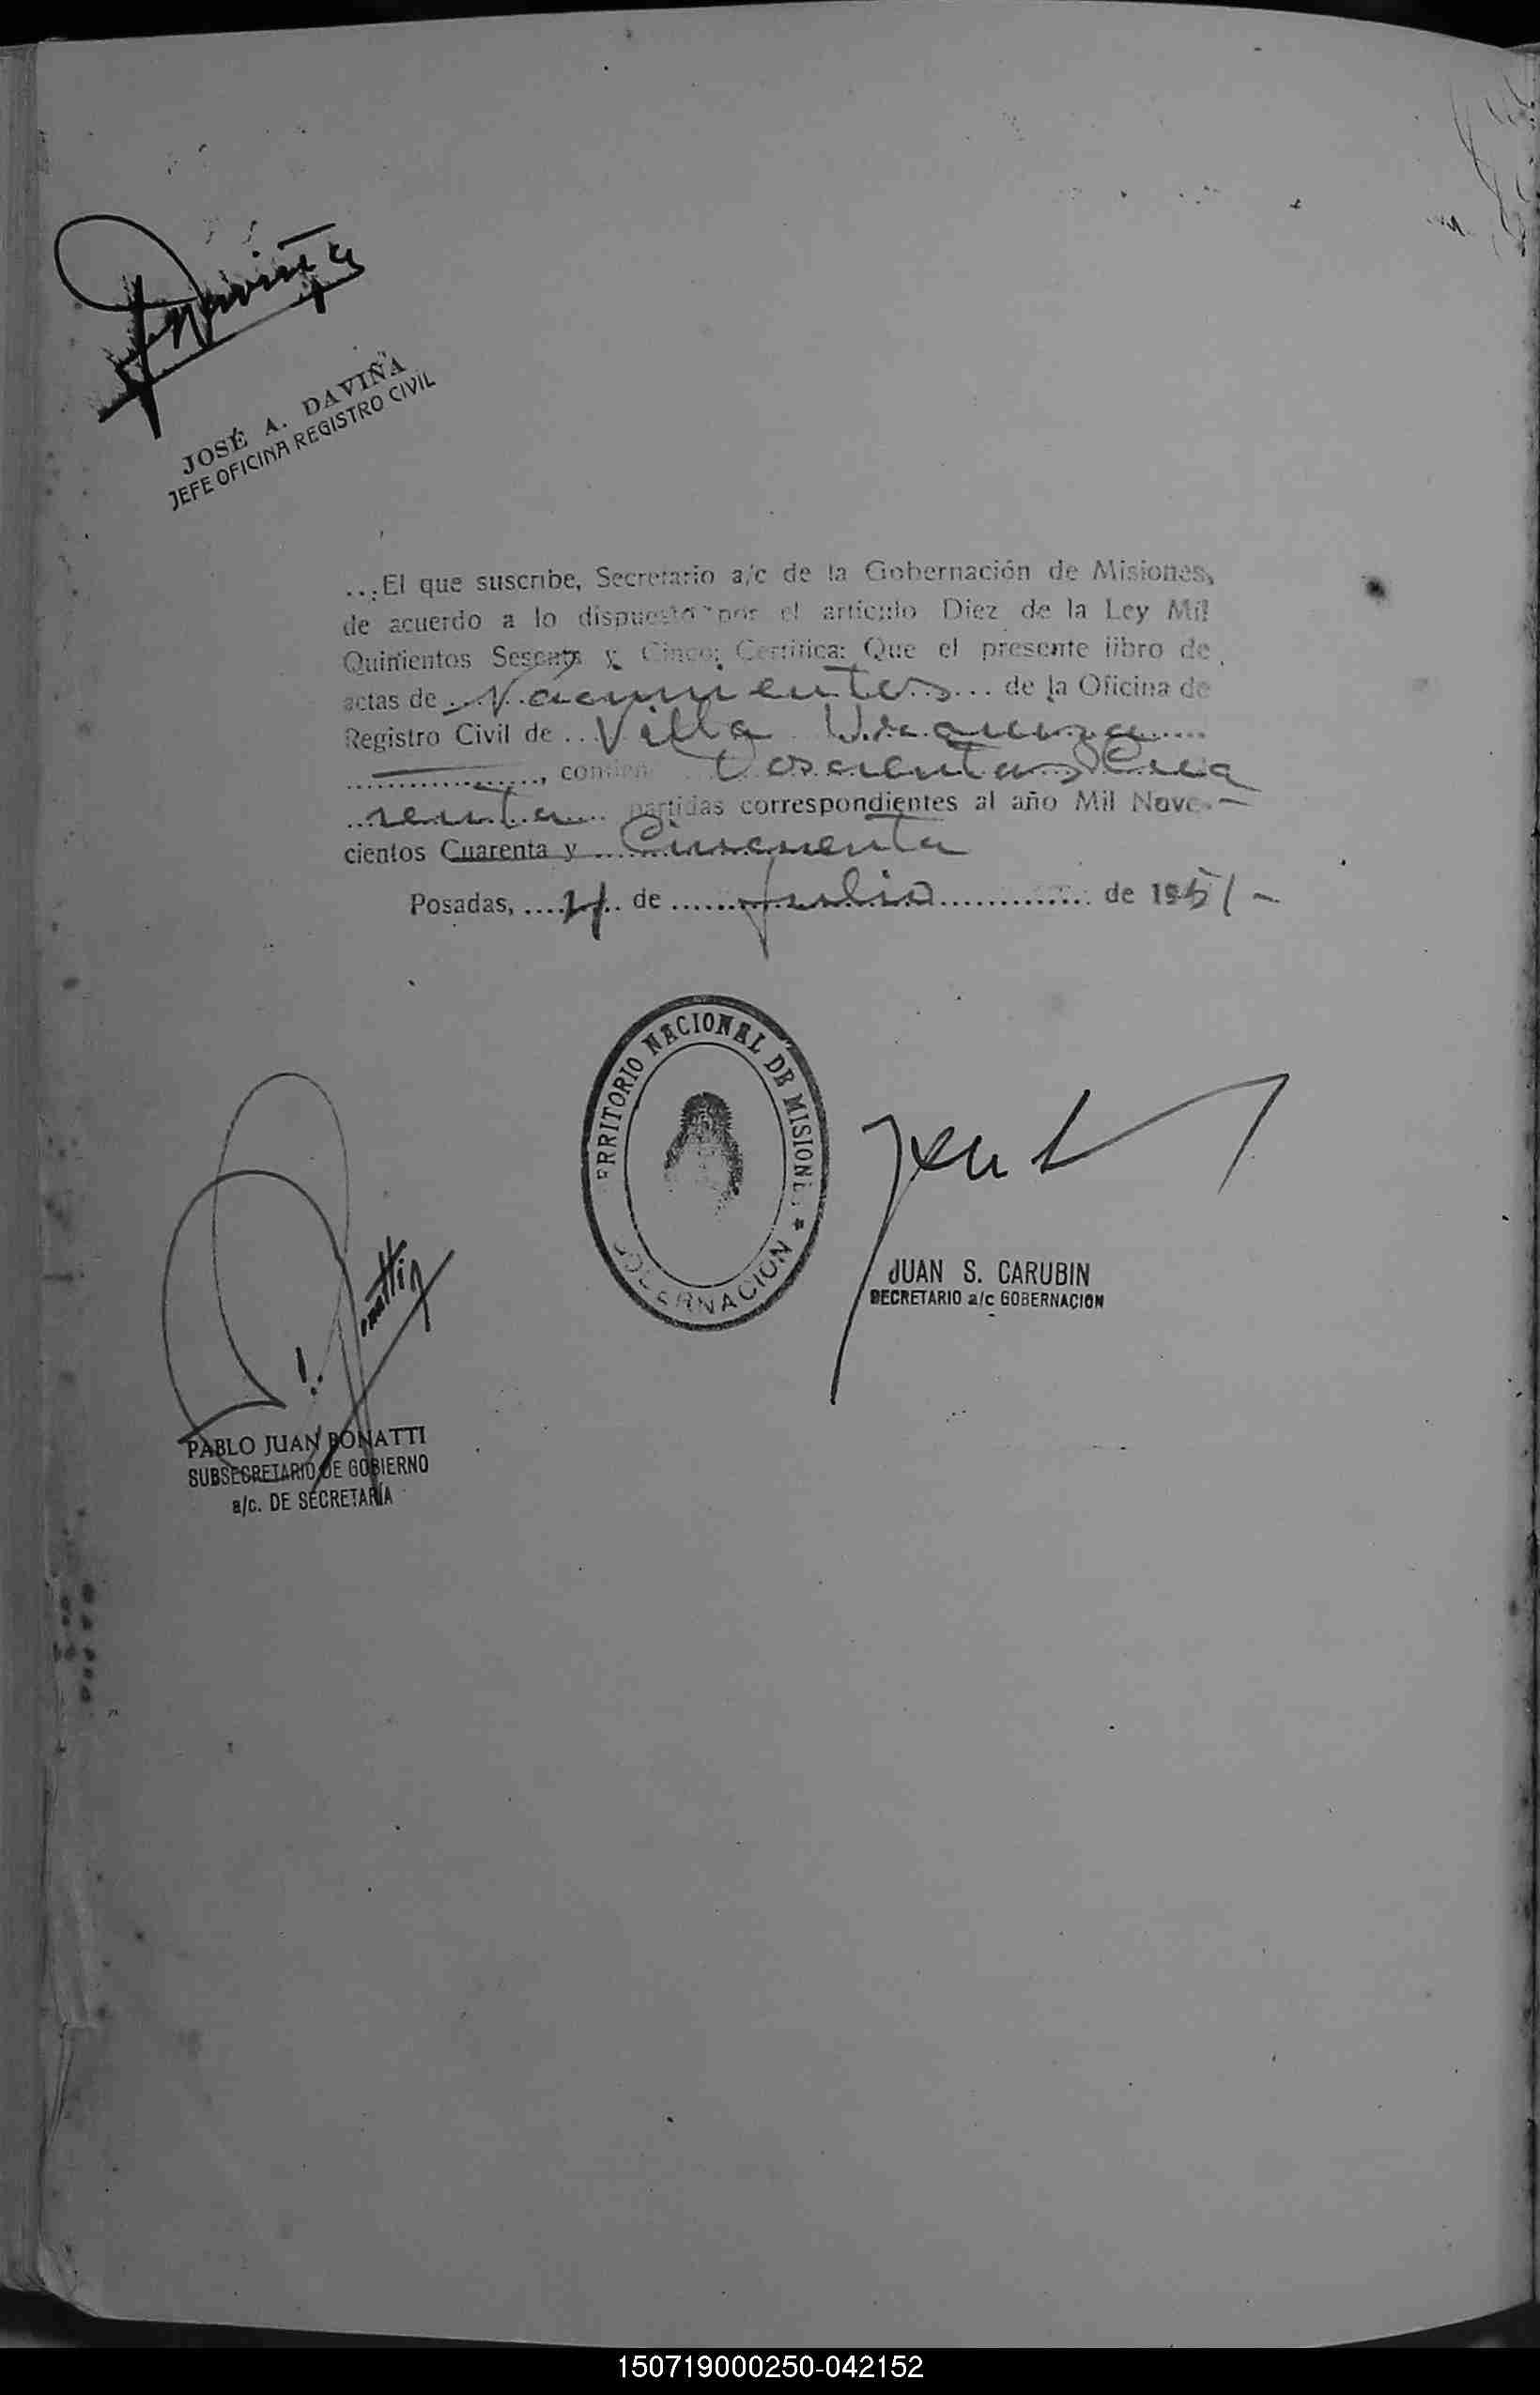 Daviña
JOSÉ A. DAVIÑA
JEFE OFICINA REGISTRO CIVIL
...El que suscribe, Secretario a/c de la Gobernación de Misiones,
de acuerdo a lo dispuesto por el artículo Diez de la Ley Mil
Quinientos Sesenta y Cinco; Certifica: Que el presente libro de
actas de ... Nacimientos ... de la Oficina de
Registro Civil de .. Villa Urquiza .....
................., contiene Doscientas Cua
renta .... partidas correspondientes al año Mil Nove-
cientos Cuarenta y ... Cincuenta
Posadas, .... de ...... julio ............. de 1951-
TERRITORIO NACIONAL DE MISIONES
GOBERNACION
JUAN S. CARUBIN
SECRETARIO a/c GOBERNACION
PABLO JUAN BONATTI
SUBSECRETARIO DE GOBIERNO
a/c. DE SECRETARÍA
150719000250-042152